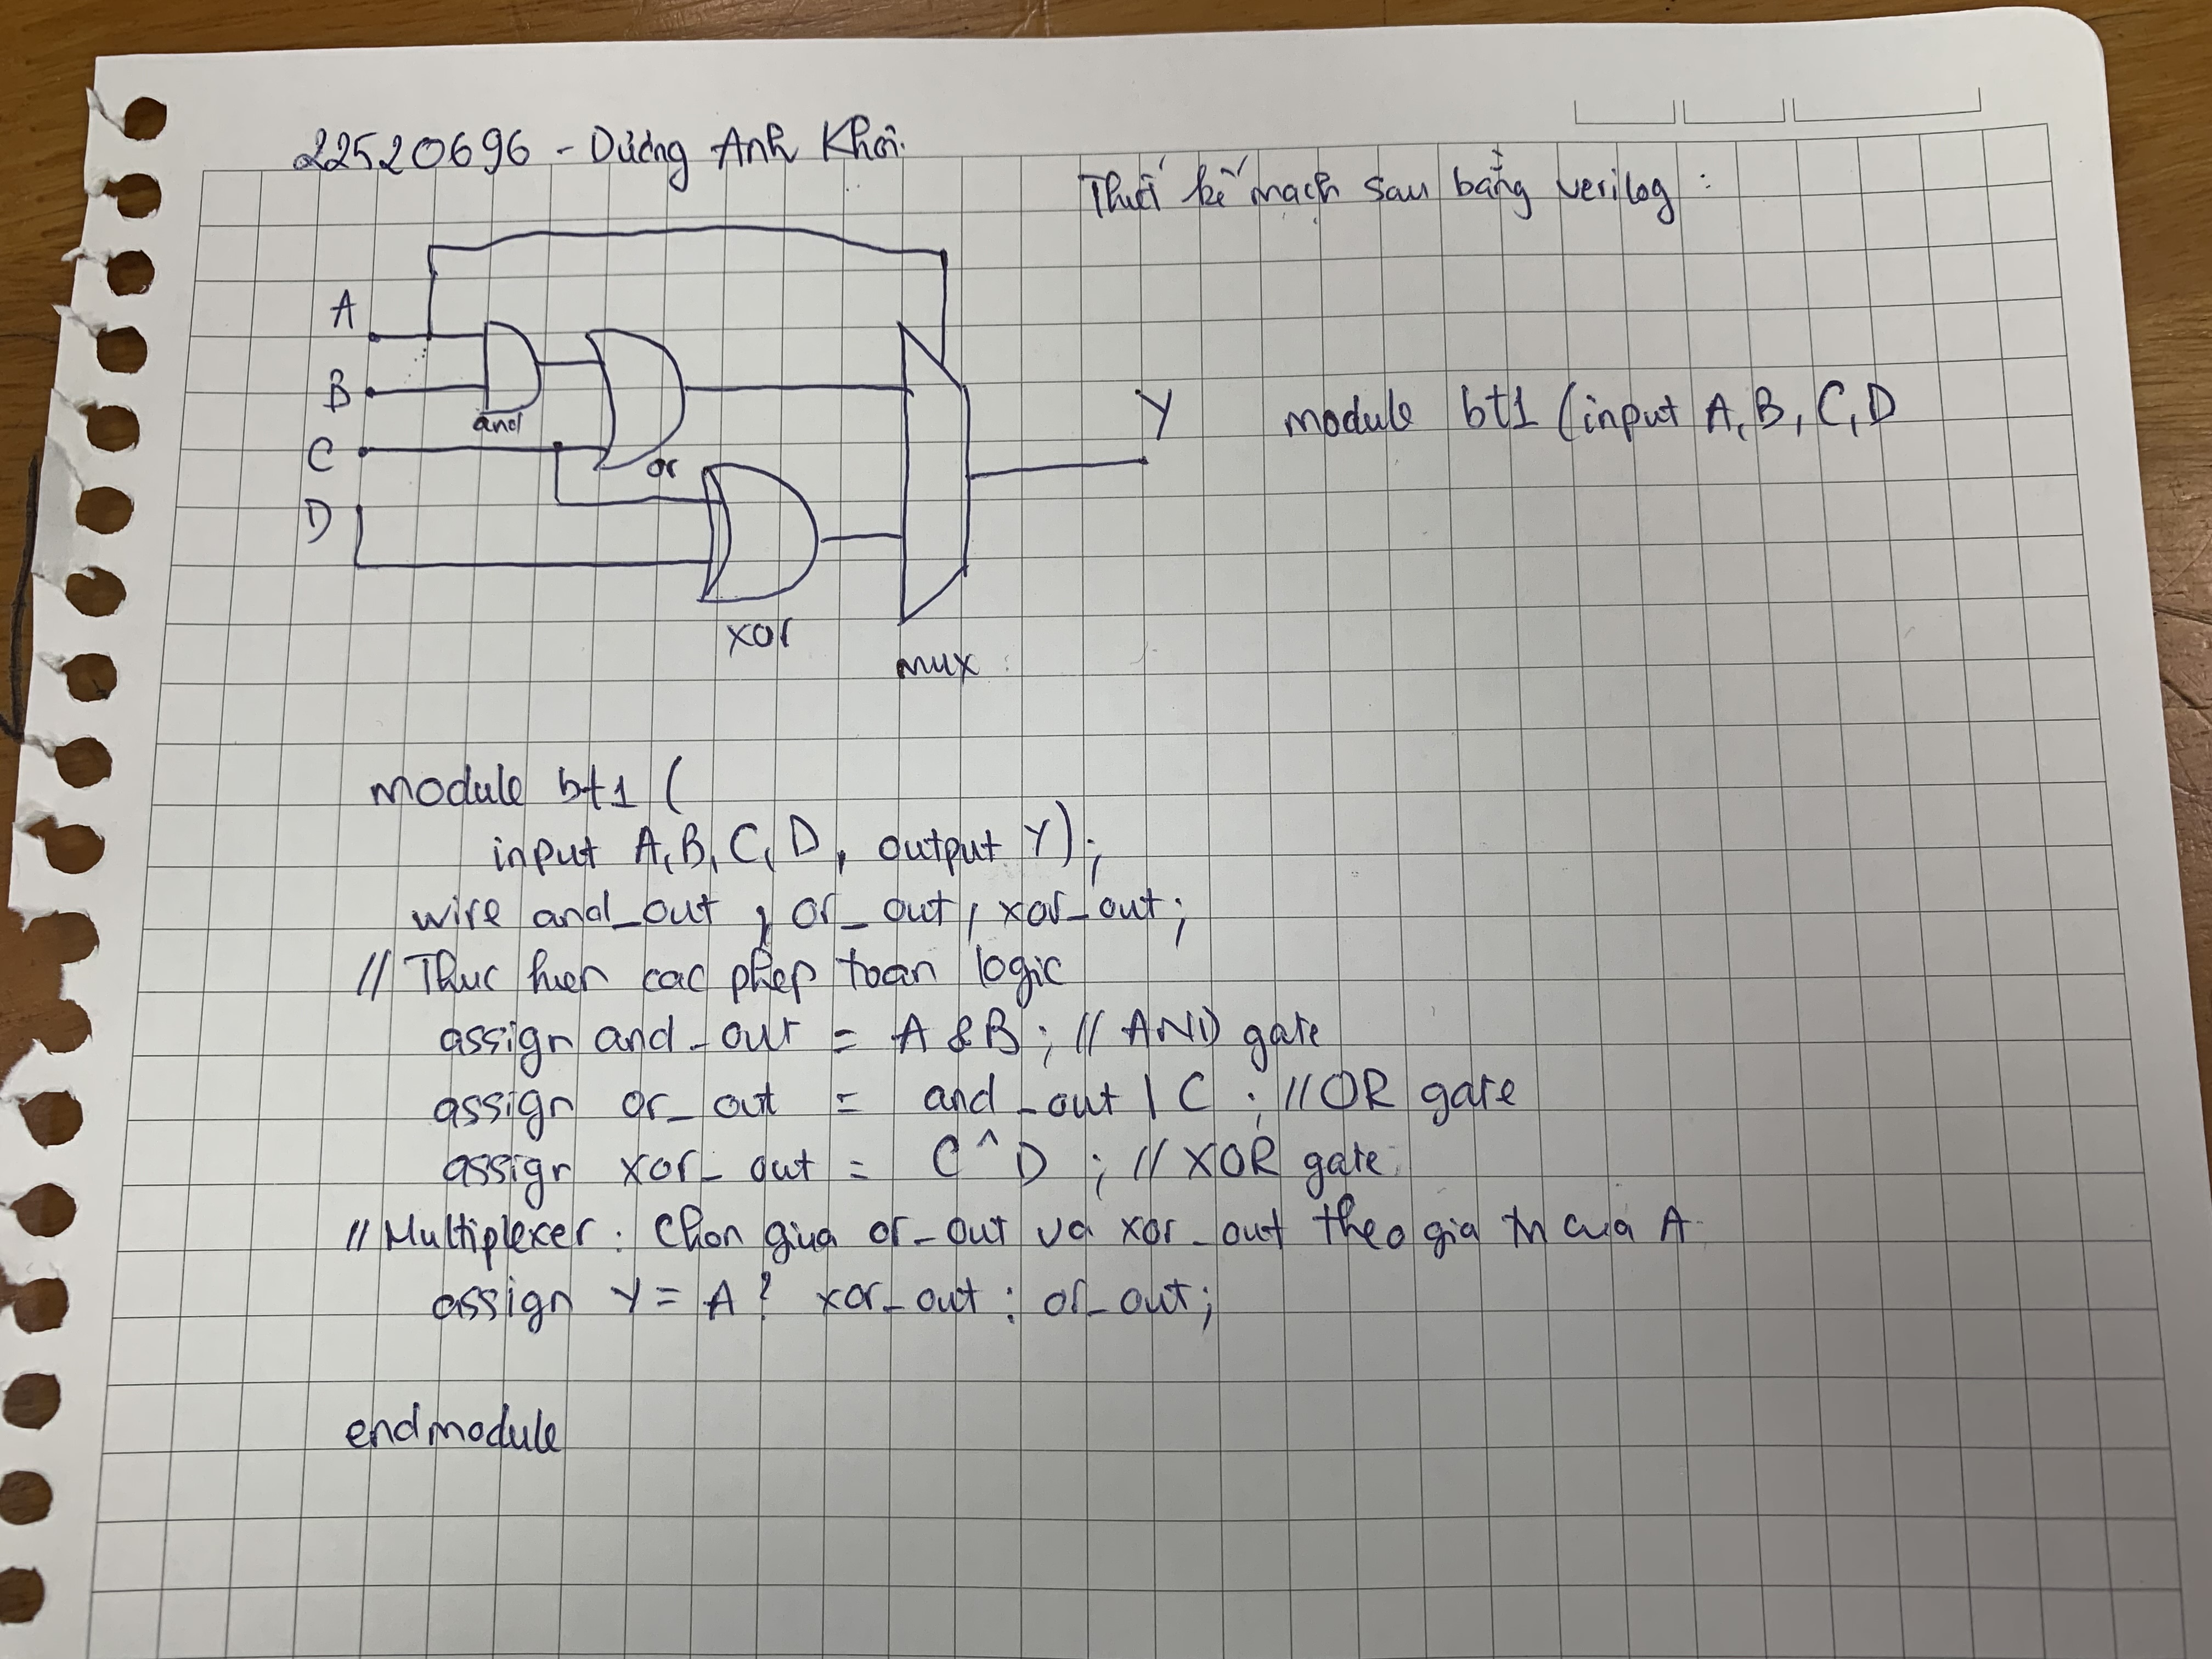 22520696 - Dương Anh Khôi.
Thiết kế mạch sau bằng verilog :
A
B
and
C
or
D
xor
mux
Y
module bt1 (input A, B, C, D
module bt1 (
input A, B, C, D, output Y);
wire and_out, or_out, xor_out;
// Thuc hien cac phep toan logic
assign and_out = A & B; // AND gate
assign or_out = and_out | C ; // OR gate
assign xor_out = C ^ D ; // XOR gate
// Multiplexer : Chon giua or_out va xor_out theo gia tri cua A
assign Y = A ? xor_out : or_out;
endmodule